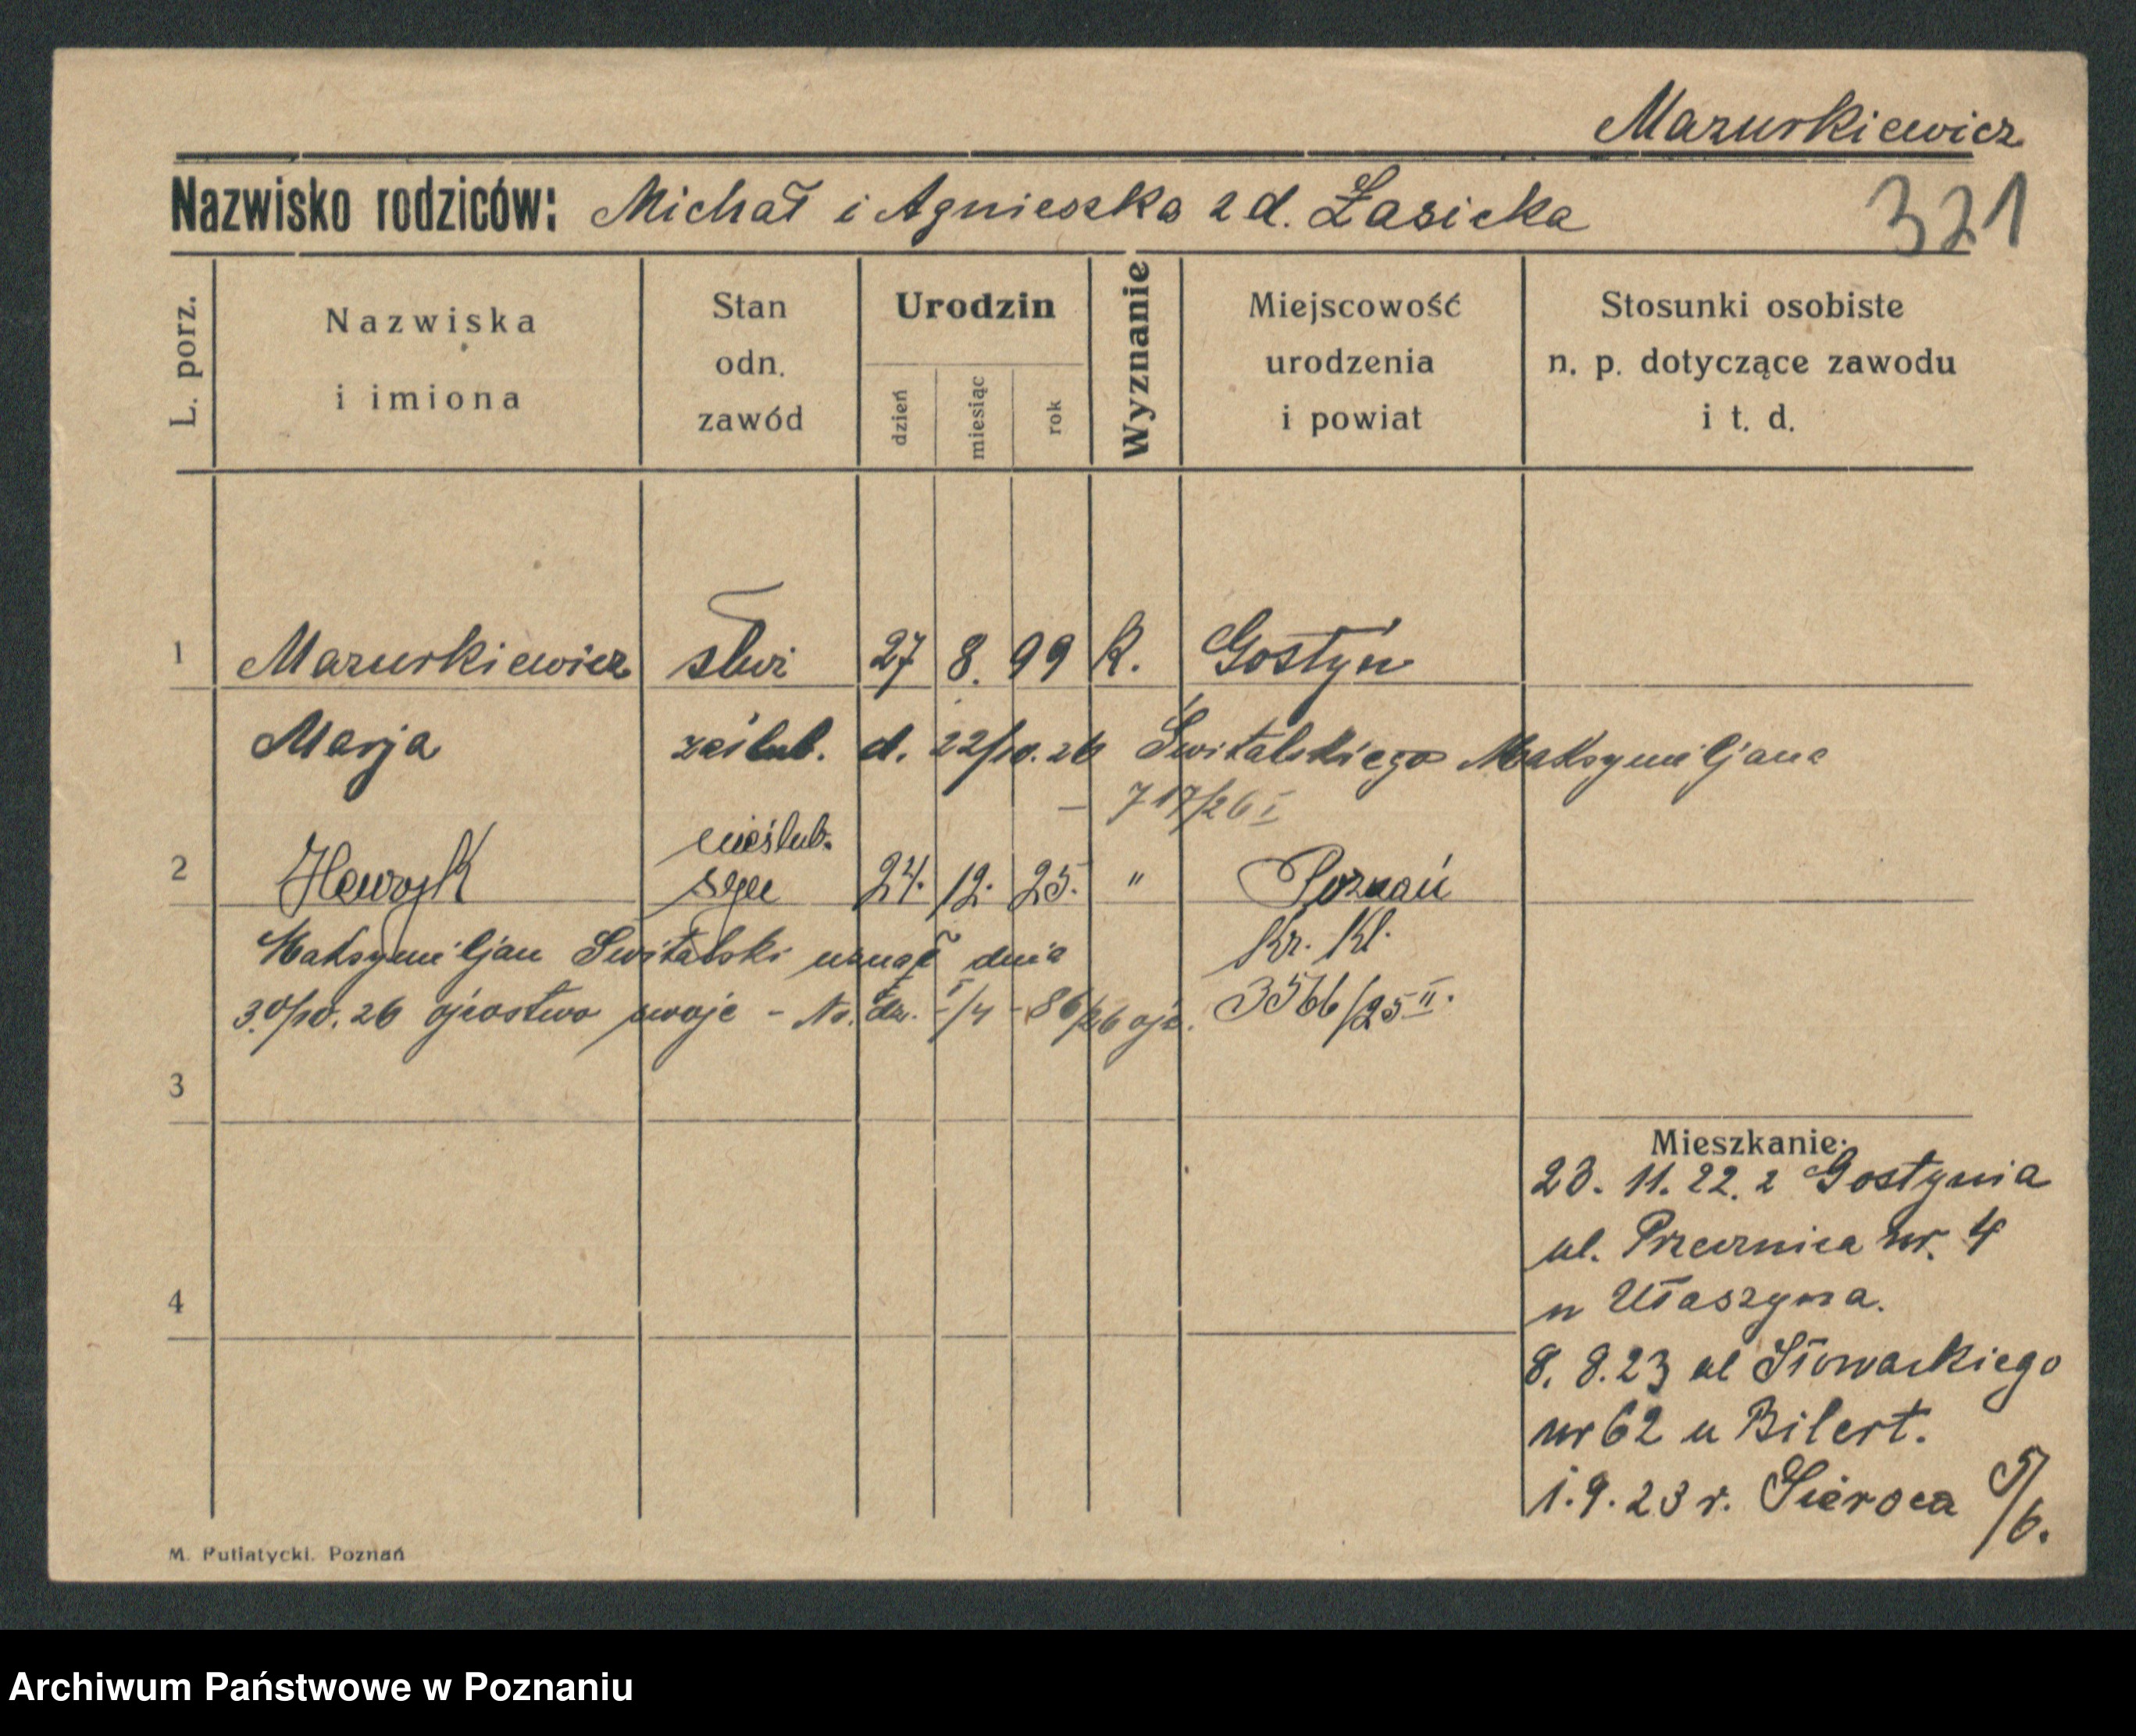 Mazurkiewicz
Nazwisko rodziców: Michał i Agnieszka z d. Łasicka
321
L. porz.
Nazwiska
i imiona
Stan
odn.
zawód
Urodzin
dzień
miesiąc
rok
Wyznanie
Miejscowość
urodzenia
i powiat
Stosunki osobiste
n. p. dotyczące zawodu
i t. d.
1 Mazurkiewicz 27 8. 99 K. Gostyń
Marja zaślub. d. 22/10. 26 Świtalskiego Maksymiljana
— 717/26 I
nieślub.
2 Henryk syn 24. 12. 25. " Poznań
Maksymiljan Świtalski uznał dnia
30/10. 26 ojcostwo swoje - Nr. dz. I/4 - 86/26 ojc.
3566/25 II.
3
4
Mieszkanie:
23. 11. 22. z Gostynia
ul. Przecznica nr. 4
u Ułaszyna.
8. 8. 23 ul Słowackiego
nr 62 u Bilert.
1. 9. 23 r. Sieroca 5/6.
M. Putiatycki. Poznań
Archiwum Państwowe w Poznaniu